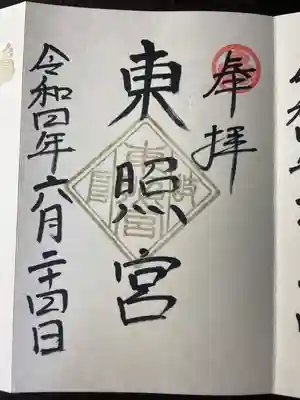 奉拝
東照宮
令和四年六月二十四日